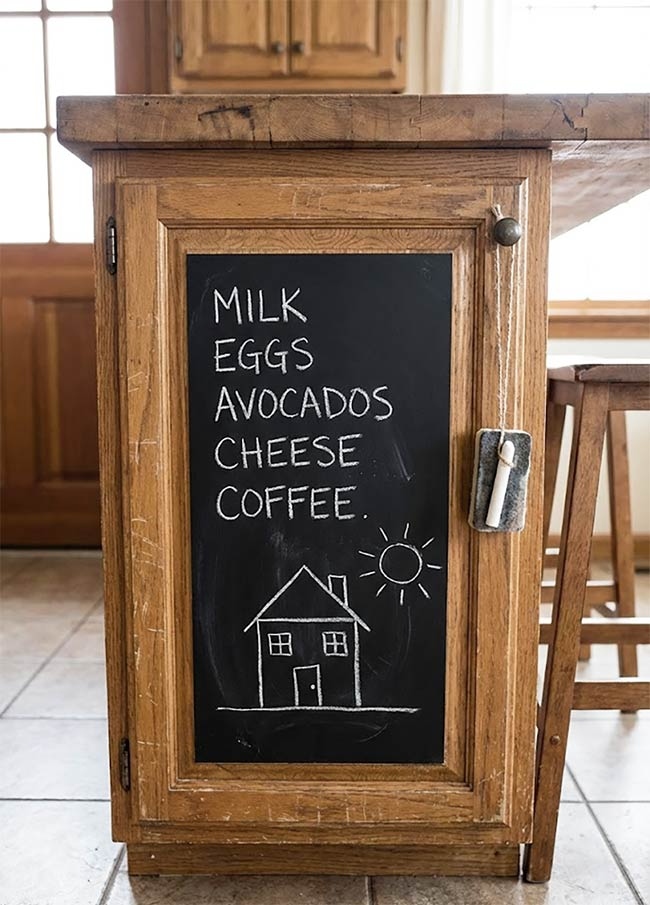 MILK
EGGS
AVOCADOS
CHEESE
COFFEE.